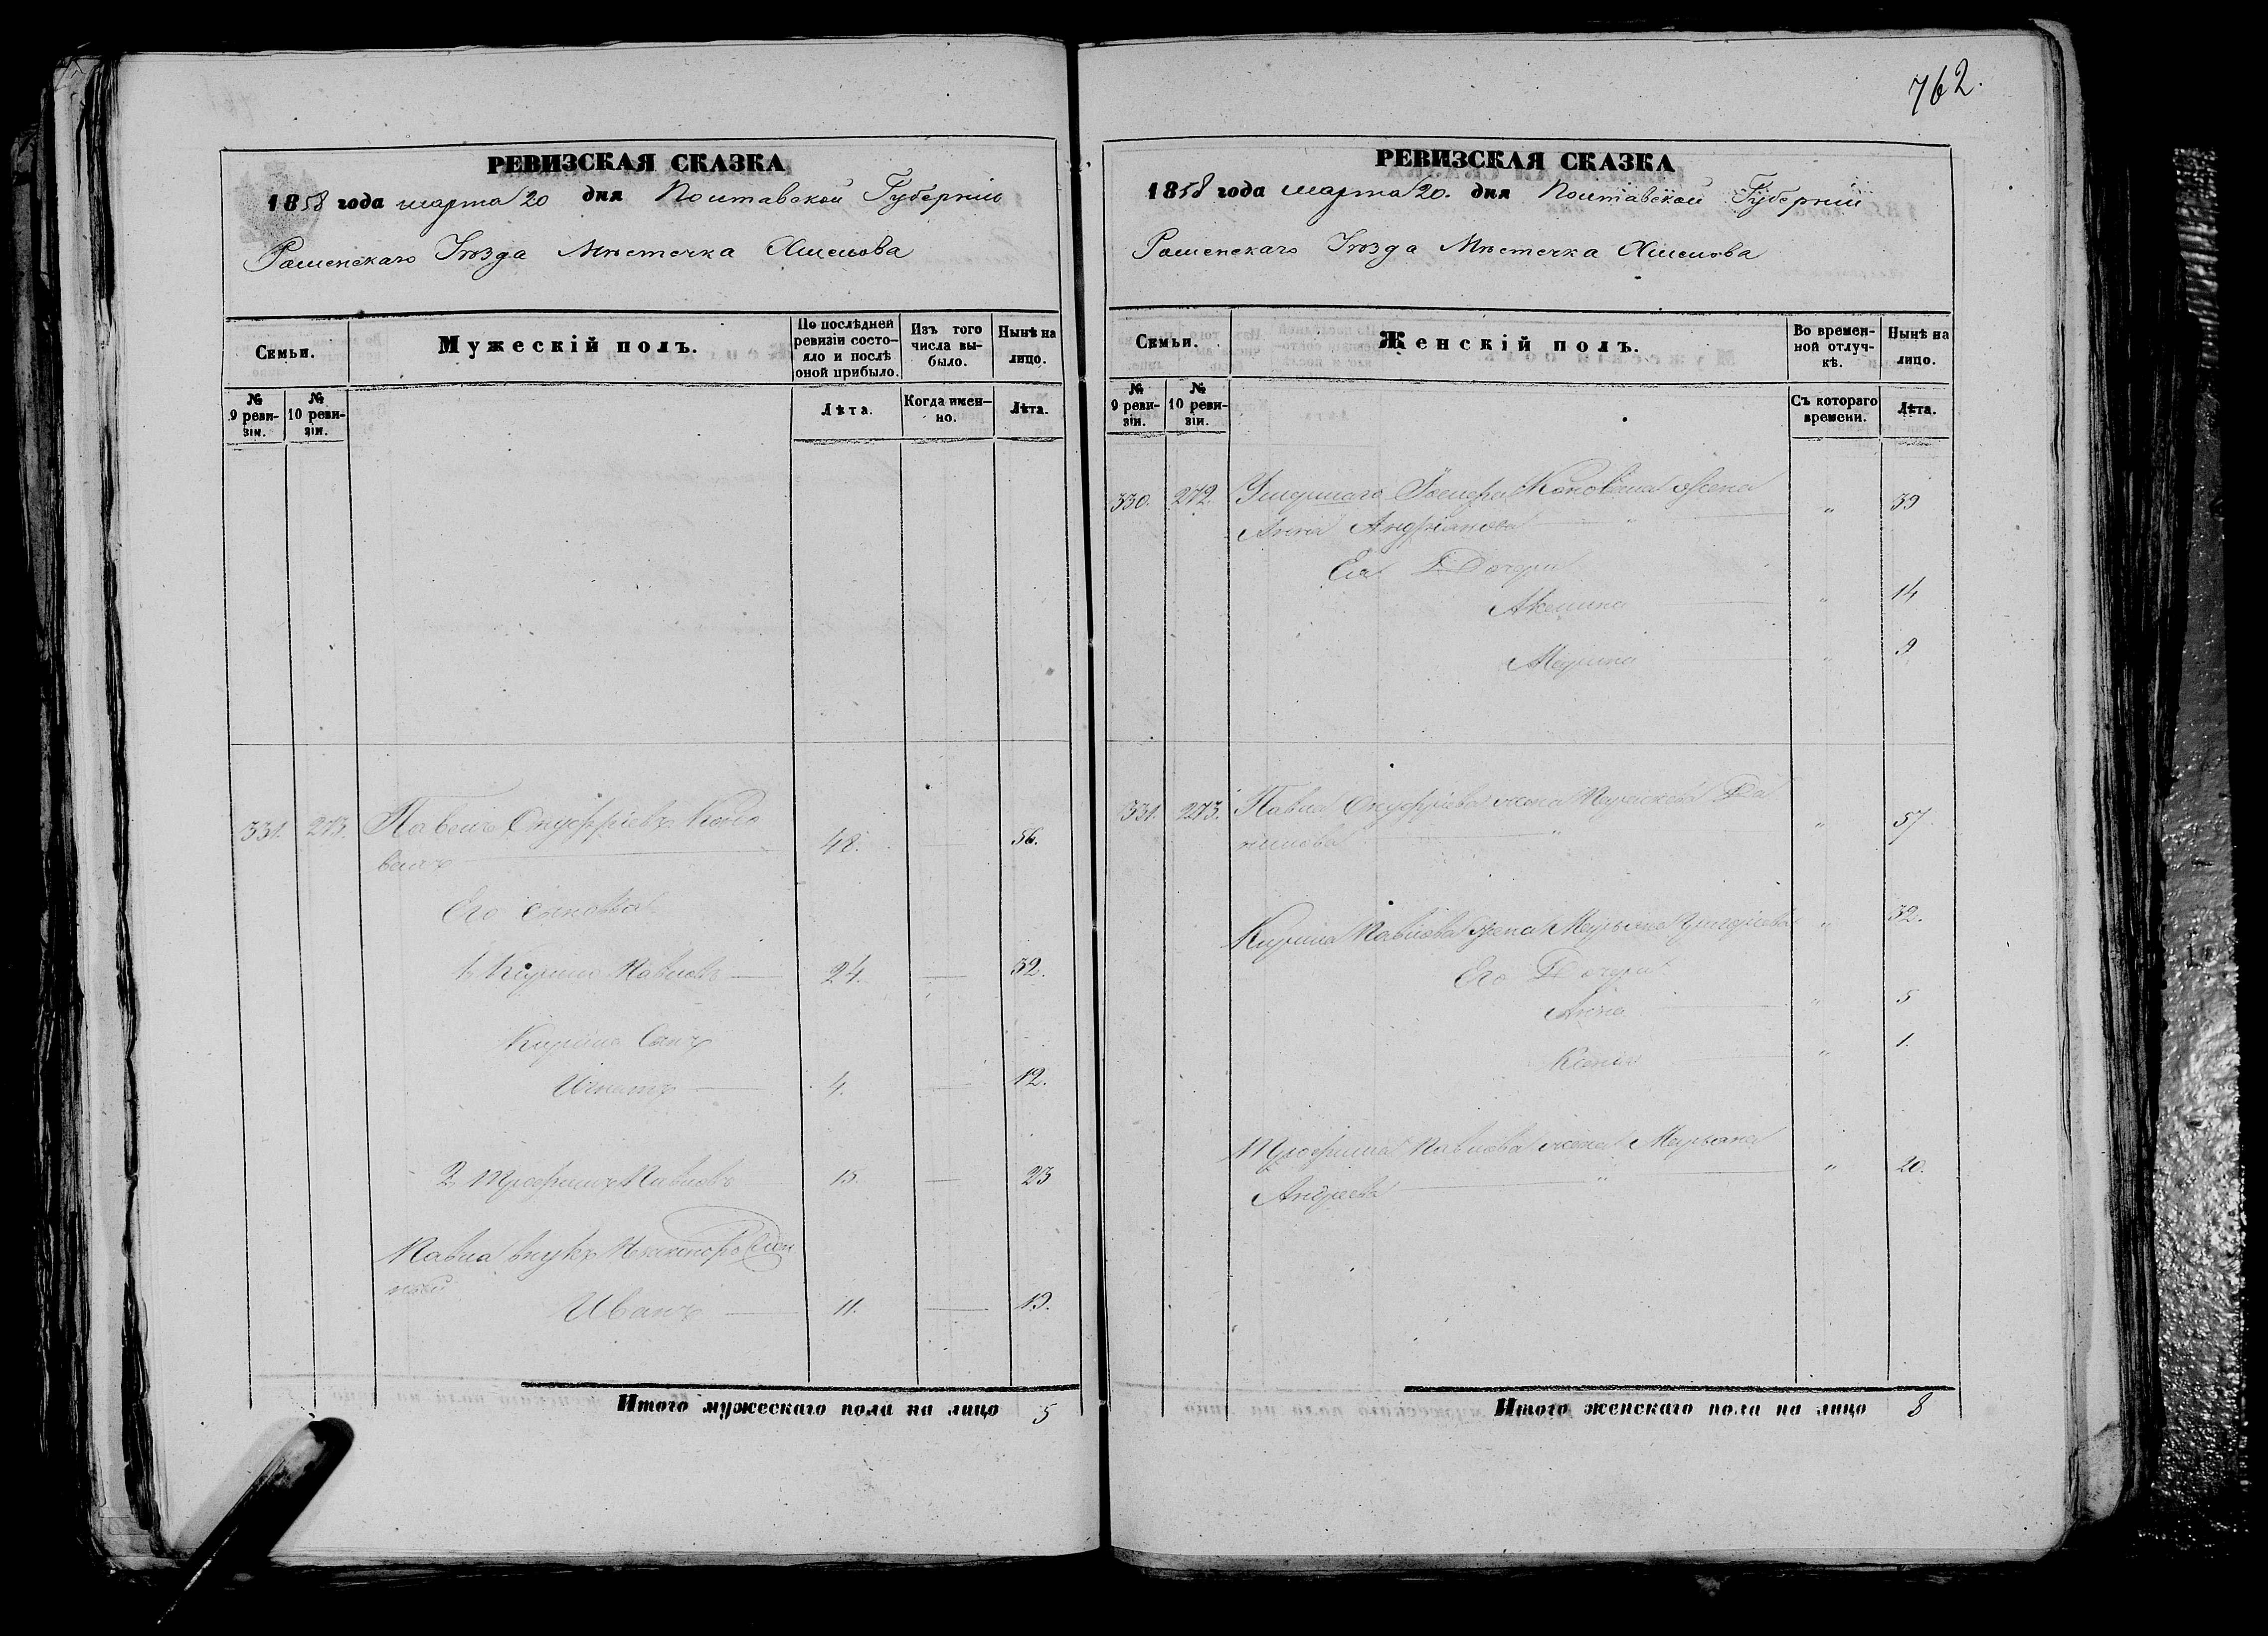 762.
РЕВИЗСКАЯ СКАЗКА
1858 года марта 20 дня Полтавской Губерніи
Роменскаго Уѣзда Мѣстечка Хмелова
Семьи.
Мужескій полъ.
По послѣдней ревизіи состояло и послѣ оной прибыло.
Изъ того числа выбыло.
Нынѣ на лицо.
№ 9 ревизіи.
№ 10 ревизіи.
Лѣта.
Когда именно.
Лѣта.
331. 273. Павелъ Онуфріевъ
48. 56.
Его сыновья
1, Кирило Павловъ 24. 32.
Кирила Сынъ
Игнатъ 4. 12.
2, Трофимъ Павловъ 15. 23
Павла внукъ Незаконорожден
ный
Иванъ 11. 19.
Итого мужескаго пола на лицо 5
РЕВИЗСКАЯ СКАЗКА
1858 года марта 20. дня Полтавской Губерніи
Роменскаго Уѣзда Мѣстечка Хмелова
Семьи.
Женскій полъ.
Во временной отлучкѣ.
Нынѣ на лицо.
№ 9 ревизіи.
№ 10 ревизіи.
Съ котораго времени.
Лѣта.
330. 272. Умершаго жена
Анна Андріанова " " 39
Ея Дочери
Акелина " 14
Марина " 9
331. 273. Павла Онуфріева жена Параскева Да
нилова " " 57
Кирила Павлова жена Марьяна " 32.
Его Дочери
Анна " 5
Ксенія " 1.
Трофима Павлова жена Марьяна
Андреева " " 20.
Итого женскаго пола на лицо 8